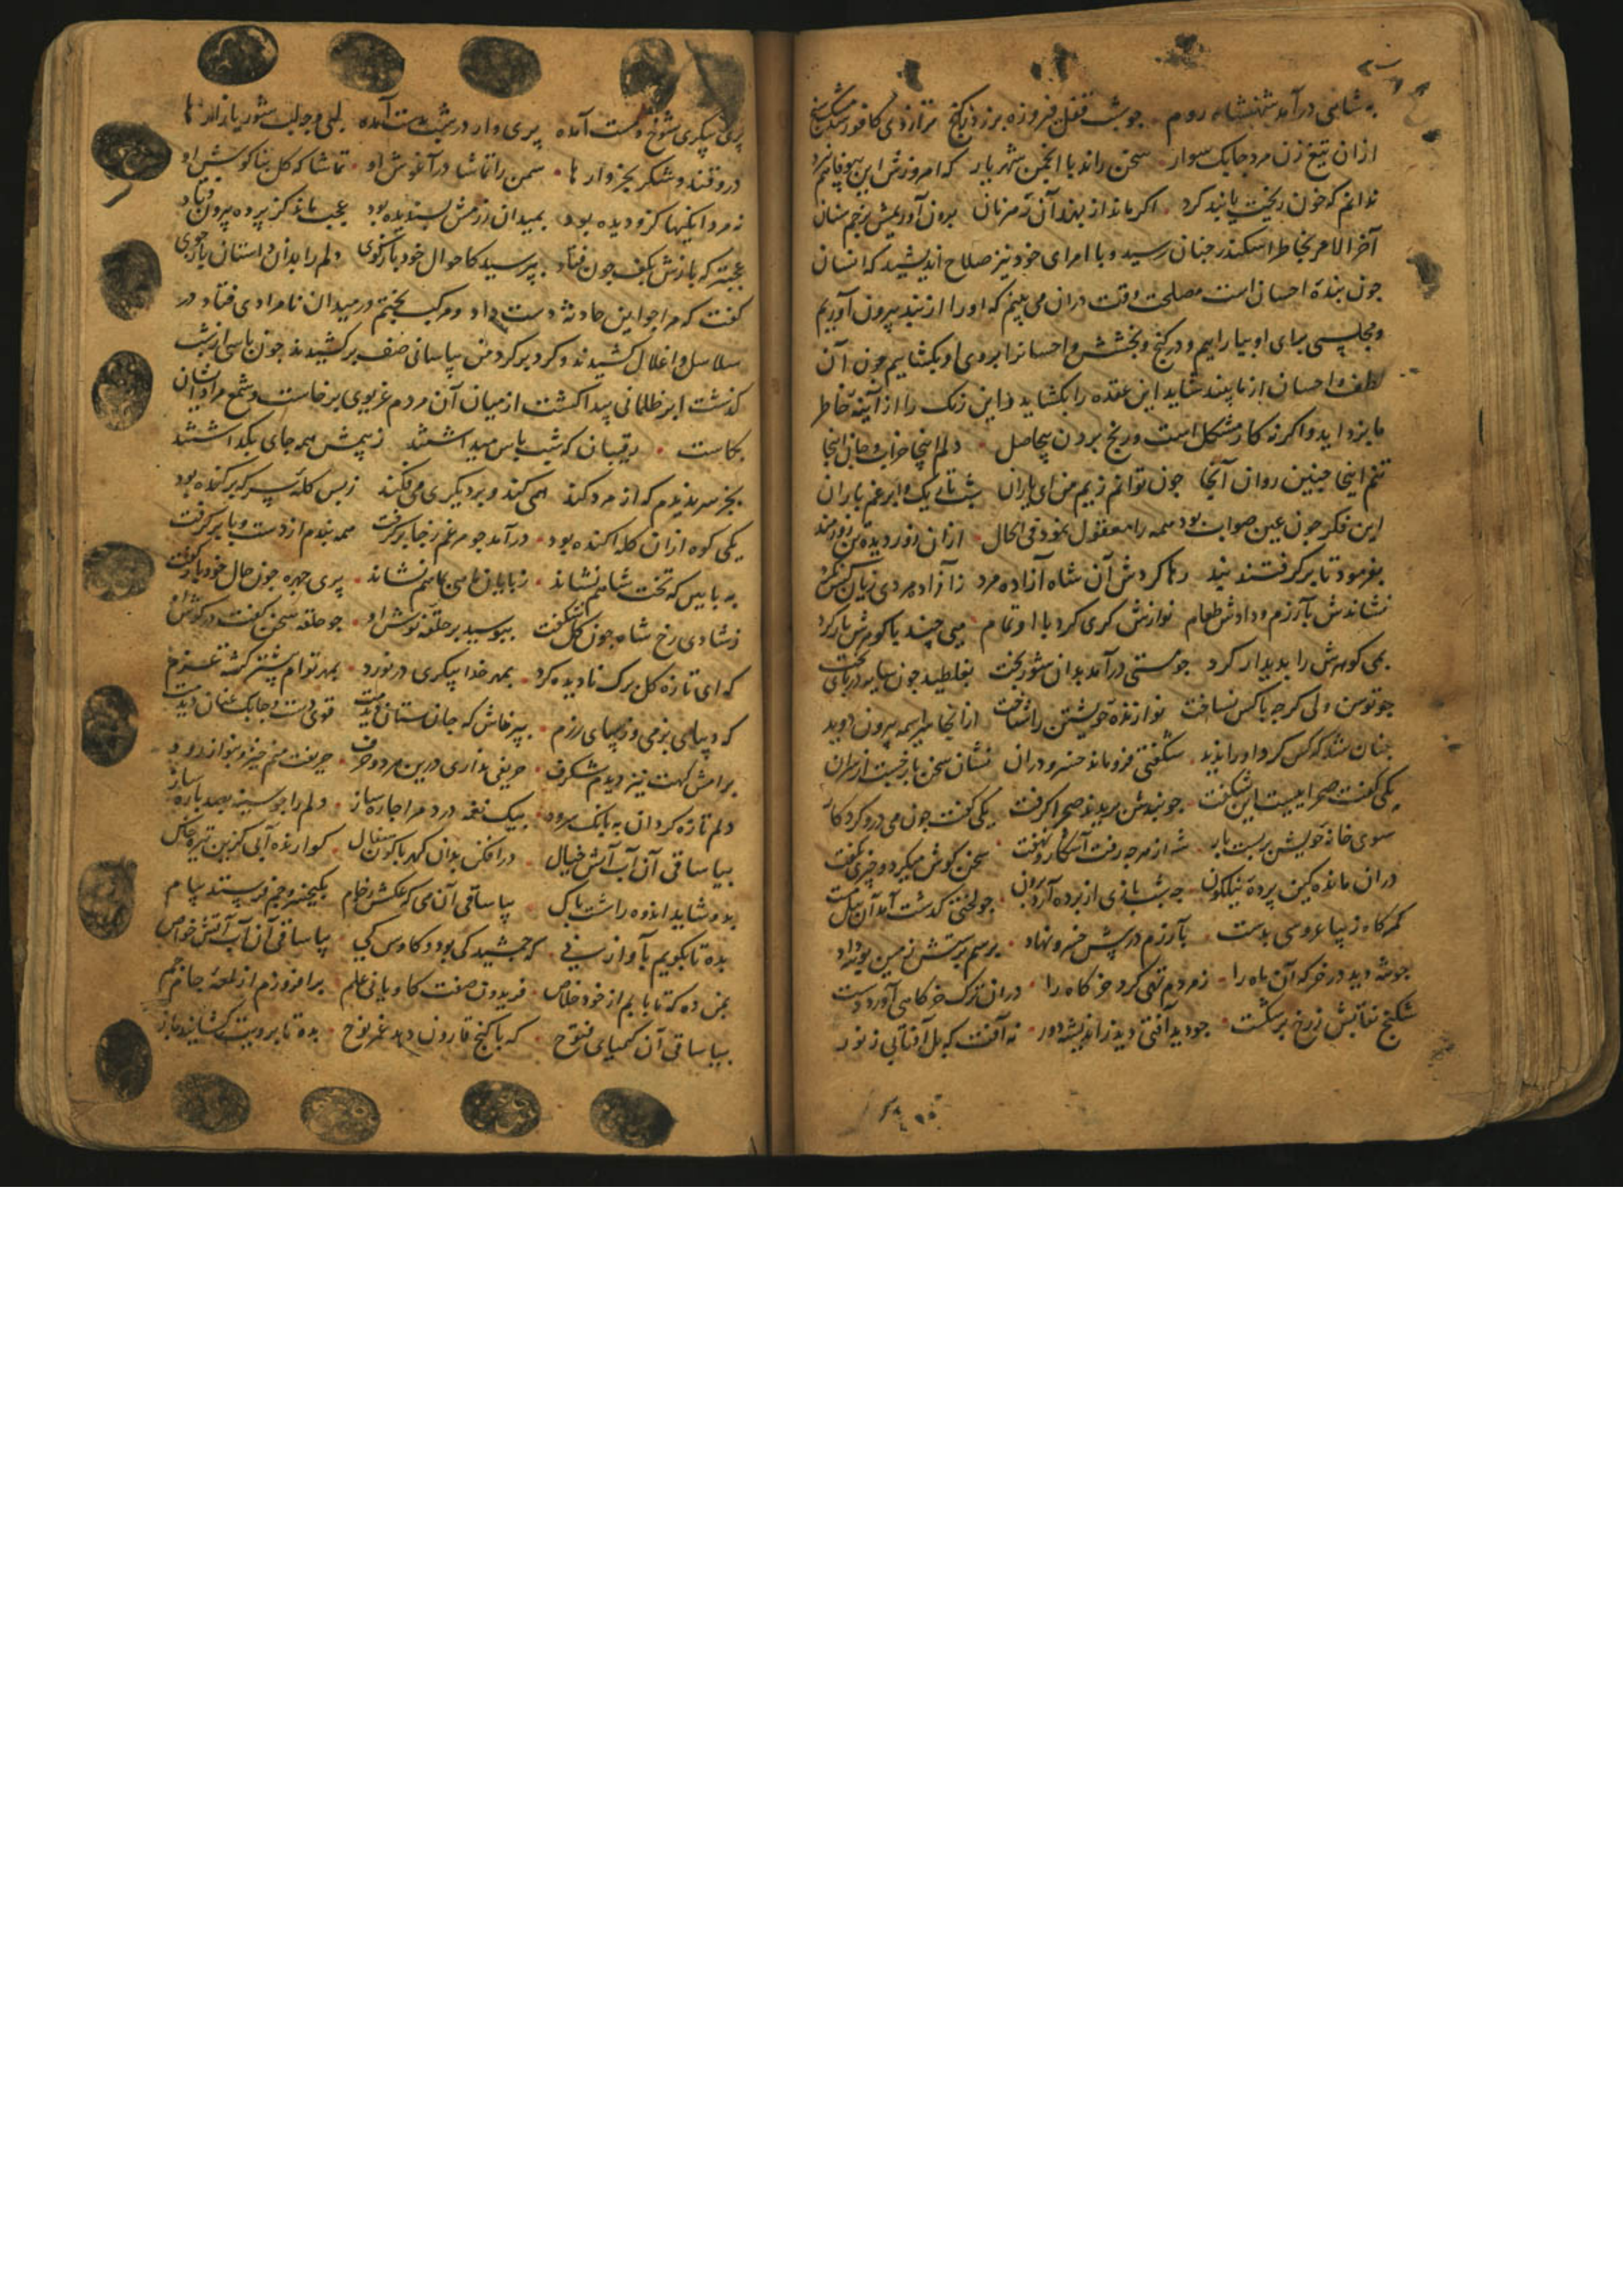 به شاهی درآمد شهنشاه روم • جو شب قفل فیروزه برزد بکنج ترازدی کافور شد مشک سنج
ازان تیغ زن مرد جابک سوار • سخن راند با انجمن شهریار که امروزش این
ندانم که خون ریخت یا بند کرد • اکر ماند از بهند آن مرزبان برون آوریمش بزخم سنان
آخر الامر بخاطر اسکندر جنان رسید و با امرای خود نیز صلاح اندیشید که انسان
جون بنده احسان است مصلحت وقت دران می بینم که او را از بند بیرون آوریم
و مجلسی برای او بیارایم و در کنج و بخشش و احسانرا بروی او بکشایم جون آن
لطف و احسان از ما بیند شاید این عقده را بکشاید و این زنک را از آئینه خاطر
ما بزداید و اکر نه کار مشکل است و رنج برون بیحاصل • دلم اینجا خراب و جان اینجا
تنم اینجا جنین روان آنجا جون توانم زیم من ای یاران شب تاریک و ابر غم باران
این فکر جون عین صواب بود همه را معقول نمود فی الحال • ازان زور دیده تن زورمند
بفرمود تا برکرفتند بند رها کردش آن شاه آزاده مرد زآزاده مردی زیان کس نکرد
نشاندش بآزرم و دادش طعام نوازش کری کرد با او تمام می چند با کوهرش یار کرد
بمی کوهرش را بدیدار کرد جو مستی درآمد بدان شوربخت بغلطید جون سایه در پای تخت
جو توسن ولی کرچه با کس نساخت نوازنده خویشتن را شناخت ازانجا سراسیمه بیرون دوید
جنان شد که کس کرد او را ندید شکفتی فرو ماند خسرو دران نشان سخن باز جست از سران
یکی کفت صحرا ییست این شکفت جو بندش بریدند صحرا کرفت یکی کفت جون می درو کرد کار
سوی خانه خویش بر بست بار شه از هر جه رفت آشکار و نهفت سخن کوش میکرد و چیزی نکفت
دران مانده کین پرده نیلکون جه شب بازی از پرده آرد برون جو لختی کذشت آمد آن
کمرکاه زیبا عروسی بدست بآزرم در پیش خسرو نهاد • برسم پرستش زمین بوسه داد
جو شه دید در خرکه آن ماه را • ز مردم تهی کرد خرکاه را • دران ترک خرکاهی آورد دست
شکنج نقابش ز رخ برشکست • جو دید آفتی دید زاندیشه دور نه آفت که بل آفتابی ز نور
پری پیکری شوخ و مست آمده پری وار در شب بدست آمده
درو قند و شکر بخروارها • سمن را تماشا در آغوش او • تماشا که کل بناکوش او
ز مردانکیها کزو دیده بود بمیدان رزمش پسندیده بود عجب ماند کز پرده بیرون فتاد
عجبتر که بازش بکف جون فتاد بپرسید کاحوال خود بازکوی دلم را بدان داستان باز جوی
کفت که مرا جو این حادثه دست داد و مرکب بختم در میدان نامرادی فتاد در
سلاسل و اغلال کشیدند و کرد بر کرد من پاسبانی صف برکشیدند جون پاسی از شب
کذشت ابر ظلمانی پیدا کشت از میان آن مردم غریوی برخاست و شمع مراد ایشان
بکاست • رقیبان که شب پاس میداشتند ز پیش همه جای بکذاشتند
بجز سر ندیدم که از مرد کند همی کند و بر دیکری می فکند ز بس کله سر که بر کنده بود
یکی کوه ازان کله آکنده بود • درآمد جو مرغم ز جا برکرفت همه بندم از دست و پا برکرفت
به بالین که تخت شاهم نشاند • ز پایان ماهی بماهم نشاند • پری چهره جون حال خود باز کفت
ز شادی رخ شاه جون کل شکفت ببوسید بر حلقه نوش او • جو حلقه سخن کفت در کوش او
که ای تازه کل برک نادیده کرد • بمهر خدا پیکری در نورد • بمهر توام بیشتر کشت عزم
که دیبای بزمی و زیبای رزم • بپرخاش که جان ستان دیدمت قوی دست و جابک عنان دیدمت
برامش کهت نیز دیدم شکرف • حریفی نداری درین هر دو حرف • حریفت منم خیز و بنواز رود
دلم تازه کردان به بانک سرود • بیک نغمه درد مرا جاره ساز • دلم را جو سینه بصد پاره ساز
بیا ساقی آن آب آتش خیال درافکن بدان کهربا کون سفال • کوارنده آبی کزین تیره خاک
بدو شاید اندوه را شست پاک بیا ساقی آن می که عکسش ز جام بکیخسرو و جم فرستد پیام
بده تا بکویم بآواز نی • که جمشید کی بود و کاوس کی بیا ساقی آن آب آتش خواص
بمن ده که تا یابم از خود خلاص • فریدون صفت کاویانی علم • برافروزم از لمعه جام جم
بیا ساقی آن کیمیای فتوح • که با کنج قارون دهد عمر نوح • بده تا برویت کشایند باز